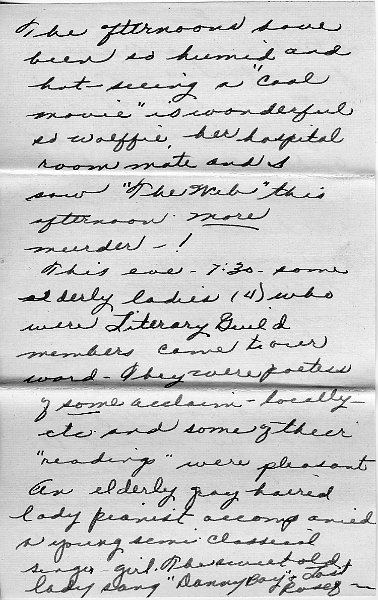 The afternoons have
been so humid and
hot - seeing a "cool
movie" is wonderful
so Wolffie, her hospital
room mate and I
saw "The Web" this
afternoon more
murder - !
This eve - 7:30 - some
elderly ladies (4) who
were Literary Guild
members came to our
ward - They were poetess
of some acclaim - locally -
etc and some of their
"reading" were pleasant
An elderly gay haired
lady pianist accompanied
a young semi classical
singer - girl. The sweet old
lady sang "Danny Boy" & Last
Rose of -